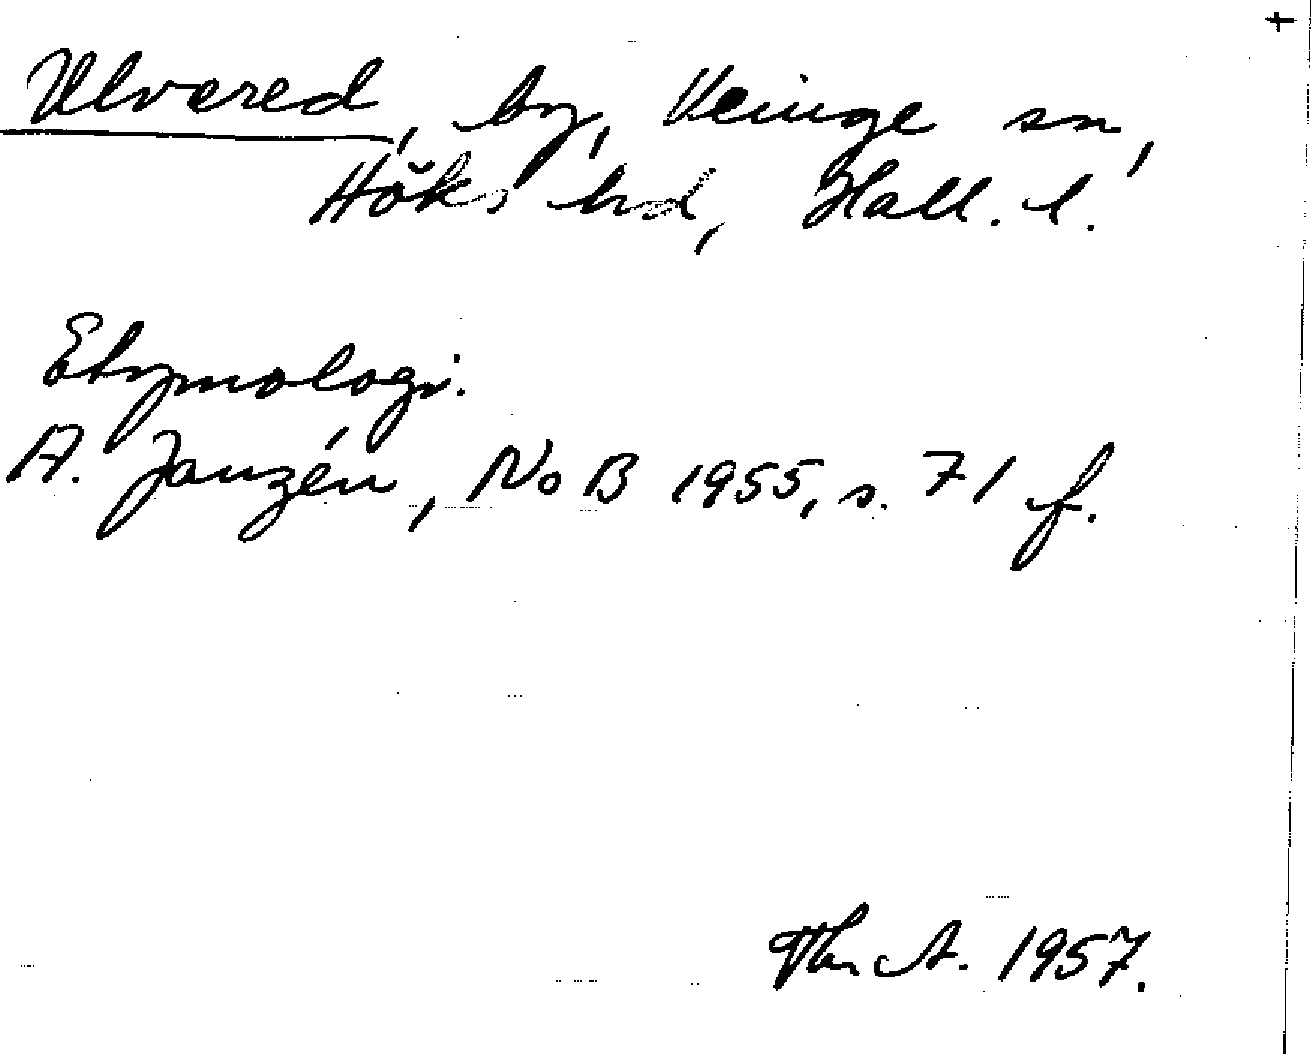 Ulvared, by, Veinge sn,
Höks hd, Hall. l.
Etymologi.
A. Janzén, NoB 1955, s. 71 f.
Thn A. 1957.